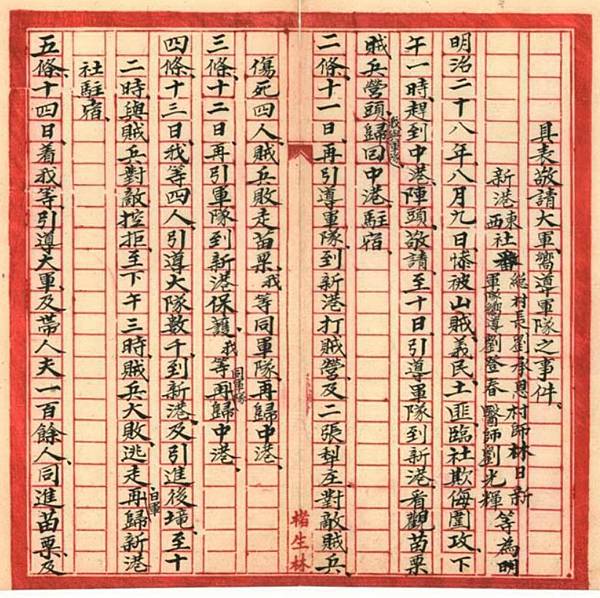 具表敬請大軍嚮導軍隊之事件、
新港東西社 總村長劉承恩村師林日新 軍隊嚮導劉登春醫師劉光輝 等為明
明治二十八年八月九日慘被山賊義民土匪臨社欺侮圍攻、下
午一時趕到中港陣頭敬請、至十日引導軍隊到新港看觀苗栗
賊兵營頭、歸回中港駐宿
二條、十一日、再引導軍隊到新港打賊營及二張犁庄對敵賊兵、
傷死四人賊兵敗走苗栗、我等同軍隊再歸中港、
三條、十二日、再引軍隊到新港保護、我等同軍隊再歸中港、
四條、十三日、我等四人引導大隊數千到新港、及引進後壠、至十
二時與賊兵對敵控拒、至下午三時賊兵大敗逃走、日軍再歸新港
社駐宿、
五條、十四日、着我等引導大軍、及帶人夫一百餘人、同進苗栗、及
林生楮